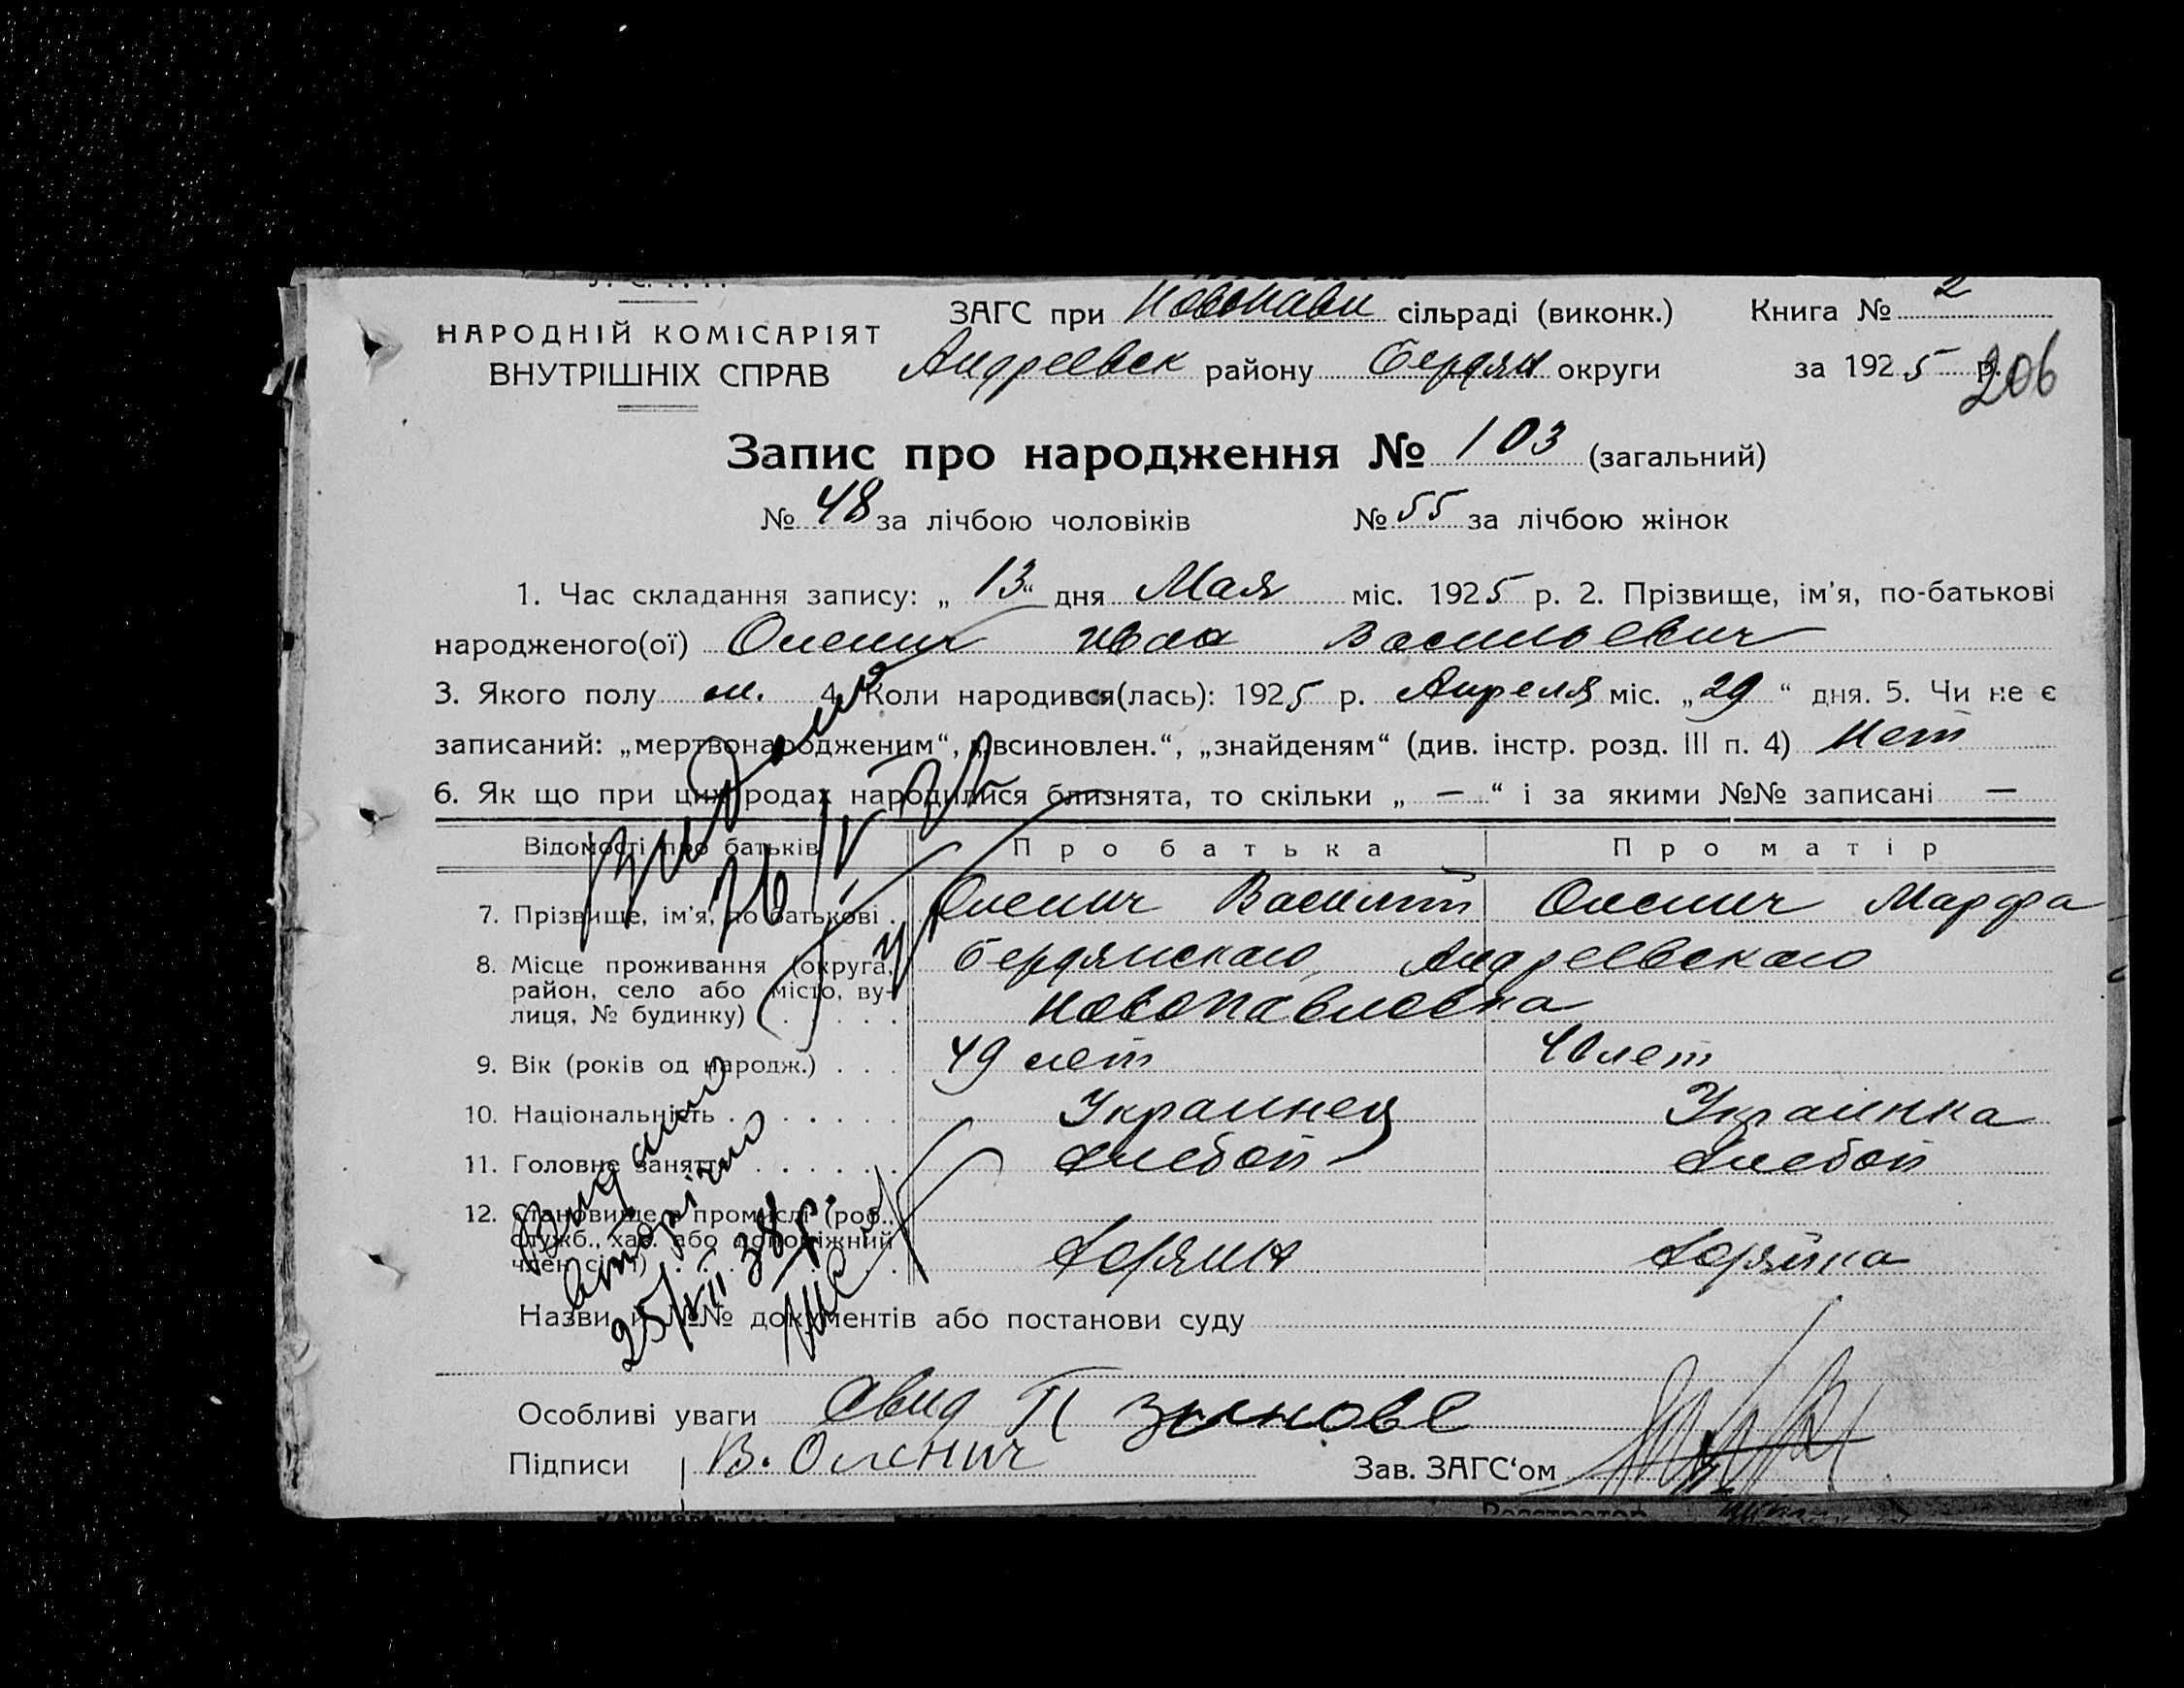 НАРОДНІЙ КОМІСАРІЯТ
ВНУТРІШНІХ СПРАВ
ЗАГС при Новопавл сільраді (виконк.) Книга № 2
Андреевск району Бердян округи за 1925 р.
206
Запис про народження № 103 (загальний)
№ 48 за лічбою чоловіків № 55 за лічбою жінок
1. Час складання запису: „13“ дня Мая міс. 1925 р. 2. Прізвище, ім'я, по-батькові
народженого(ої) Оленич Иван Васильевич
3. Якого полу м. 4. Коли народився(лась): 1925 р. Апреля міс. „29“ дня. 5. Чи не є
записаний: „мертвонародженим“, „всиновлен.“, „знайденям“ (див. інстр. розд. III п. 4) Нет
6. Як що при цих родах народилися близнята, то скільки „ — “ і за якими №№ записані —
Відомості про батьків Про батька Про матір
7. Прізвище, ім'я, по батькові . Оленич Василий Оленич Марфа
8. Місце проживання (округа, Бердянскаго, Андреевскаго
район, село або місто, ву-
лиця, № будинку) Новопавловка
9. Вік (років од народж.) . . . 49 лет 40 лет
10. Національність . . . . . . Украинец Украинка
11. Головне заняття . . . . . . Хлебоп Хлебоп
12. Становище в промислі (роб.,
служб., хаз. або допоміжний
член сім'ї) Хозяин Хозяйка
Видано
Видано
вторічно
25/VII 38 р.
Назви й №№ документів або постанови суду
Особливі уваги Свид П
Підписи В. Оленич Зав. ЗАГС'ом